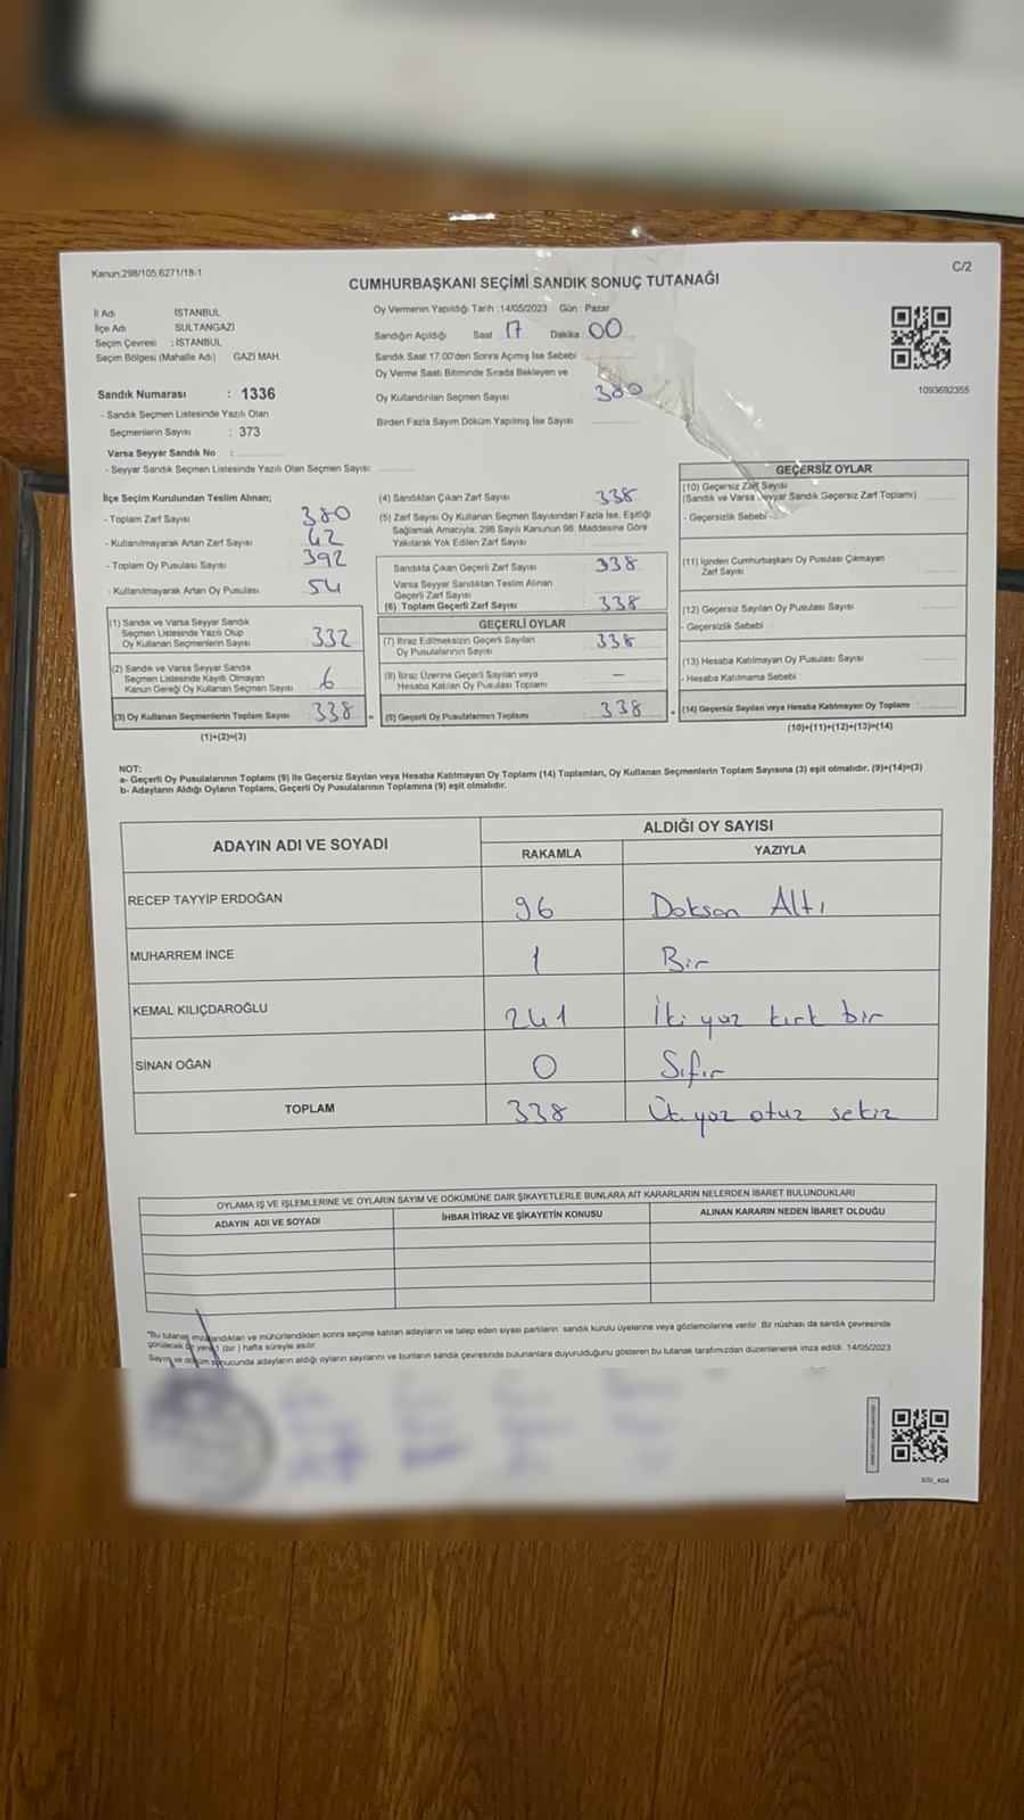 Kanun:298/105,6271/18-1
C/2
CUMHURBAŞKANI SEÇİMİ SANDIK SONUÇ TUTANAĞI
İl Adı İSTANBUL
İlçe Adı SULTANGAZİ
Seçim Çevresi : İSTANBUL
Seçim Bölgesi (Mahalle Adı) GAZİ MAH.
Oy Vermenin Yapıldığı Tarih :14/05/2023 Gün : Pazar
Sandığın Açıldığı Saat 17 Dakika 00
Sandık Saat 17.00'den Sonra Açılmış İse Sebebi
Oy Verme Saati Bitiminde Sırada Bekleyen ve
Oy Kullandırılan Seçmen Sayısı 380
Birden Fazla Sayım Döküm Yapılmış İse Sayısı
1093692355
Sandık Numarası : 1336
- Sandık Seçmen Listesinde Yazılı Olan
Seçmenlerin Sayısı : 373
Varsa Seyyar Sandık No :
- Seyyar Sandık Seçmen Listesinde Yazılı Olan Seçmen Sayısı:
İlçe Seçim Kurulundan Teslim Alınan;
- Toplam Zarf Sayısı 380
- Kullanılmayarak Artan Zarf Sayısı 42
- Toplam Oy Pusulası Sayısı 392
- Kullanılmayarak Artan Oy Pusulası 54
(1) Sandık ve Varsa Seyyar Sandık
Seçmen Listesinde Yazılı Olup
Oy Kullanan Seçmenlerin Sayısı 332
(2) Sandık ve Varsa Seyyar Sandık
Seçmen Listesinde Kayıtlı Olmayan
Kanun Gereği Oy Kullanan Seçmen Sayısı 6
(3) Oy Kullanan Seçmenlerin Toplam Sayısı 338
(1)+(2)=(3)
(4) Sandıktan Çıkan Zarf Sayısı 338
(5) Zarf Sayısı Oy Kullanan Seçmen Sayısından Fazla İse, Eşitliği
Sağlamak Amacıyla, 298 Sayılı Kanunun 98. Maddesine Göre
Yakılarak Yok Edilen Zarf Sayısı
Sandıkta Çıkan Geçerli Zarf Sayısı 338
Varsa Seyyar Sandıktan Teslim Alınan
Geçerli Zarf Sayısı
(6) Toplam Geçerli Zarf Sayısı 338
GEÇERLİ OYLAR
(7) İtiraz Edilmeksizin Geçerli Sayılan
Oy Pusulalarının Sayısı 338
(8) İtiraz Üzerine Geçerli Sayılan veya
Hesaba Katılan Oy Pusulası Toplamı —
(9) Geçerli Oy Pusulalarının Toplamı 338
GEÇERSİZ OYLAR
(10) Geçersiz Zarf Sayısı
(Sandık ve Varsa Seyyar Sandık Geçersiz Zarf Toplamı)
- Geçersizlik Sebebi
(11) İçinden Cumhurbaşkanı Oy Pusulası Çıkmayan
Zarf Sayısı
(12) Geçersiz Sayılan Oy Pusulası Sayısı
- Geçersizlik Sebebi
(13) Hesaba Katılmayan Oy Pusulası Sayısı
- Hesaba Katılmama Sebebi
(14) Geçersiz Sayılan veya Hesaba Katılmayan Oy Toplamı
(10)+(11)+(12)+(13)=(14)
NOT:
a- Geçerli Oy Pusulalarının Toplamı (9) ile Geçersiz Sayılan veya Hesaba Katılmayan Oy Toplamı (14) Toplamları, Oy Kullanan Seçmenlerin Toplam Sayısına (3) eşit olmalıdır. (9)+(14)=(3)
b- Adayların Aldığı Oyların Toplamı, Geçerli Oy Pusulalarının Toplamına (9) eşit olmalıdır.
ADAYIN ADI VE SOYADI
ALDIĞI OY SAYISI
RAKAMLA YAZIYLA
RECEP TAYYİP ERDOĞAN 96 Doksan Altı
MUHARREM İNCE 1 Bir
KEMAL KILIÇDAROĞLU 241 İki yüz kırk bir
SİNAN OĞAN 0 Sıfır
TOPLAM 338 Üç yüz otuz sekiz
OYLAMA İŞ VE İŞLEMLERİNE VE OYLARIN SAYIM VE DÖKÜMÜNE DAİR ŞİKAYETLERLE BUNLARA AİT KARARLARIN NELERDEN İBARET BULUNDUKLARI
ADAYIN ADI VE SOYADI İHBAR İTİRAZ VE ŞİKAYETİN KONUSU ALINAN KARARIN NEDEN İBARET OLDUĞU
"Bu tutanak imzalandıktan ve mühürlendikten sonra seçime katılan adayların ve talep eden siyasi partilerin sandık kurulu üyelerine veya gözlemcilerine verilir. Bir nüshası da sandık çevresinde
görülecek bir yere 1 (bir) hafta süreyle asılır.
Sayım ve döküm sonucunda adayların aldığı oyların sayılarını ve bunların sandık çevresinde bulunanlara duyurulduğunu gösteren bu tutanak tarafımızdan düzenlenerek imza edildi. 14/05/2023